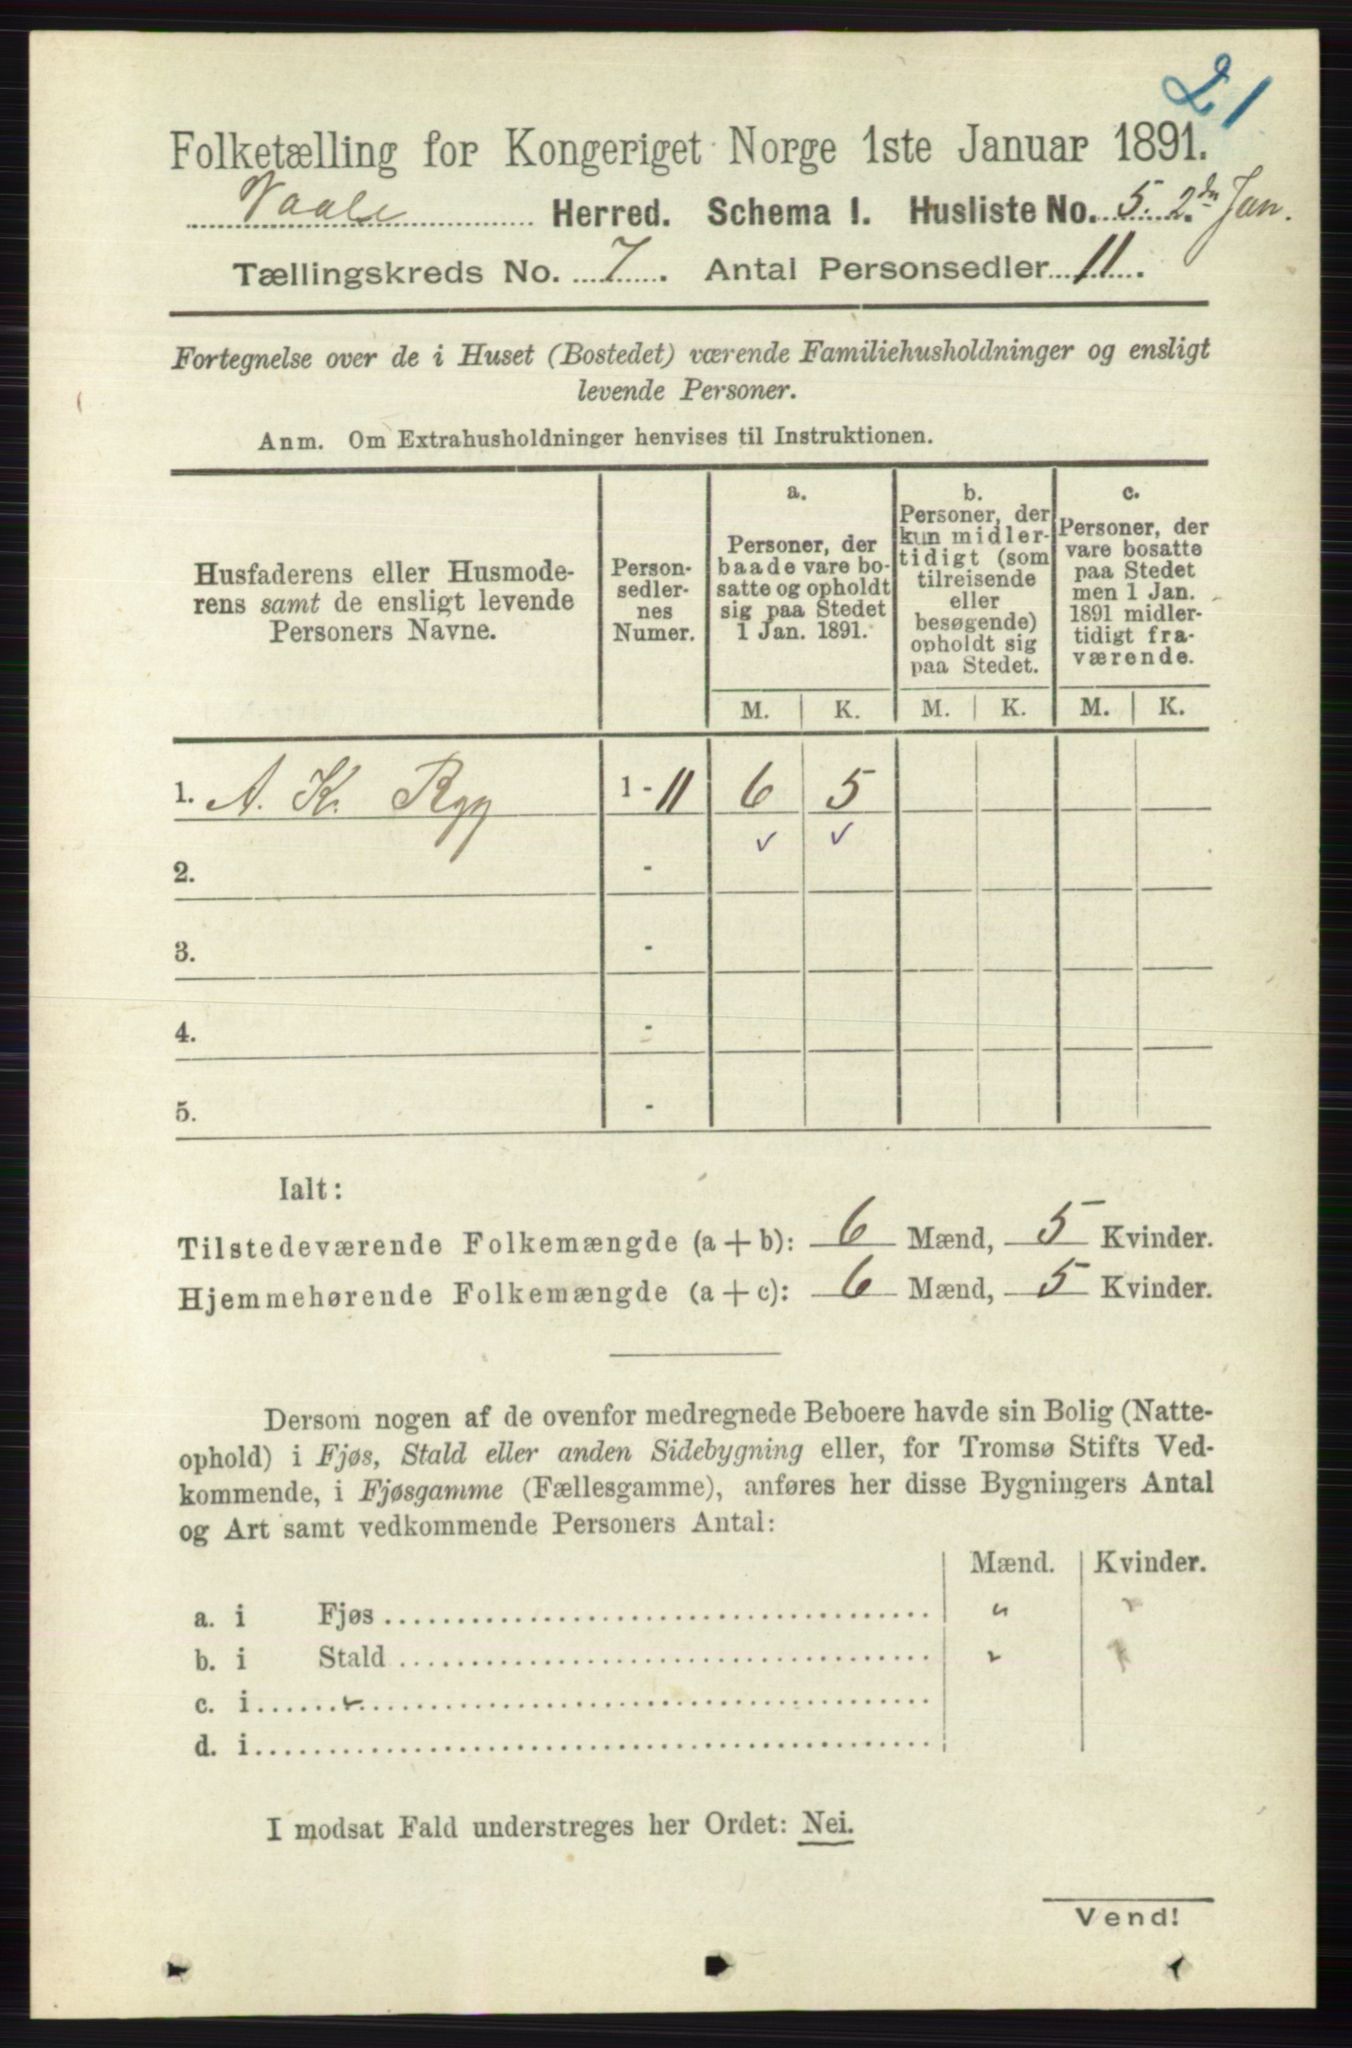 21
Folketælling for Kongeriget Norge 1ste Januar 1891.
Vaale Herred. Schema I. Husliste No. 5. 2den Jan.
Tællingskreds No. 7. Antal Personsedler 11.
Fortegnelse over de i Huset (Bostedet) værende Familiehusholdninger og ensligt
levende Personer.
Anm. Om Extrahusholdninger henvises til Instruktionen.
Husfaderens eller Husmode-
rens samt de ensligt levende
Personers Navne.
Person-
sedler-
nes
Numer.
a.
Personer, der
baade vare bo-
satte og opholdt
sig paa Stedet
1 Jan. 1891.
b.
Personer, der
kun midler-
tidigt (som
tilreisende
eller
besøgende)
opholdt sig
paa Stedet.
c.
Personer, der
vare bosatte
paa Stedet
men 1 Jan.
1891 midler-
tidigt fra-
værende.
M. K. M. K. M. K.
1. A. K. Ryg 1 - 11 6 5
✓ ✓
2. -
3. -
4. -
5. -
Ialt:
Tilstedeværende Folkemængde (a + b): 6 Mænd, 5 Kvinder.
Hjemmehørende Folkemængde (a + c): 6 Mænd, 5 Kvinder.
Dersom nogen af de ovenfor medregnede Beboere havde sin Bolig (Natte-
ophold) i Fjøs, Stald eller anden Sidebygning eller, for Tromsø Stifts Ved-
kommende, i Fjøsgamme (Fællesgamme), anføres her disse Bygningers Antal
og Art samt vedkommende Personers Antal:
Mænd. Kvinder.
a. i Fjøs
b. i Stald
c. i
d. i
I modsat Fald understreges her Ordet: Nei.
Vend!